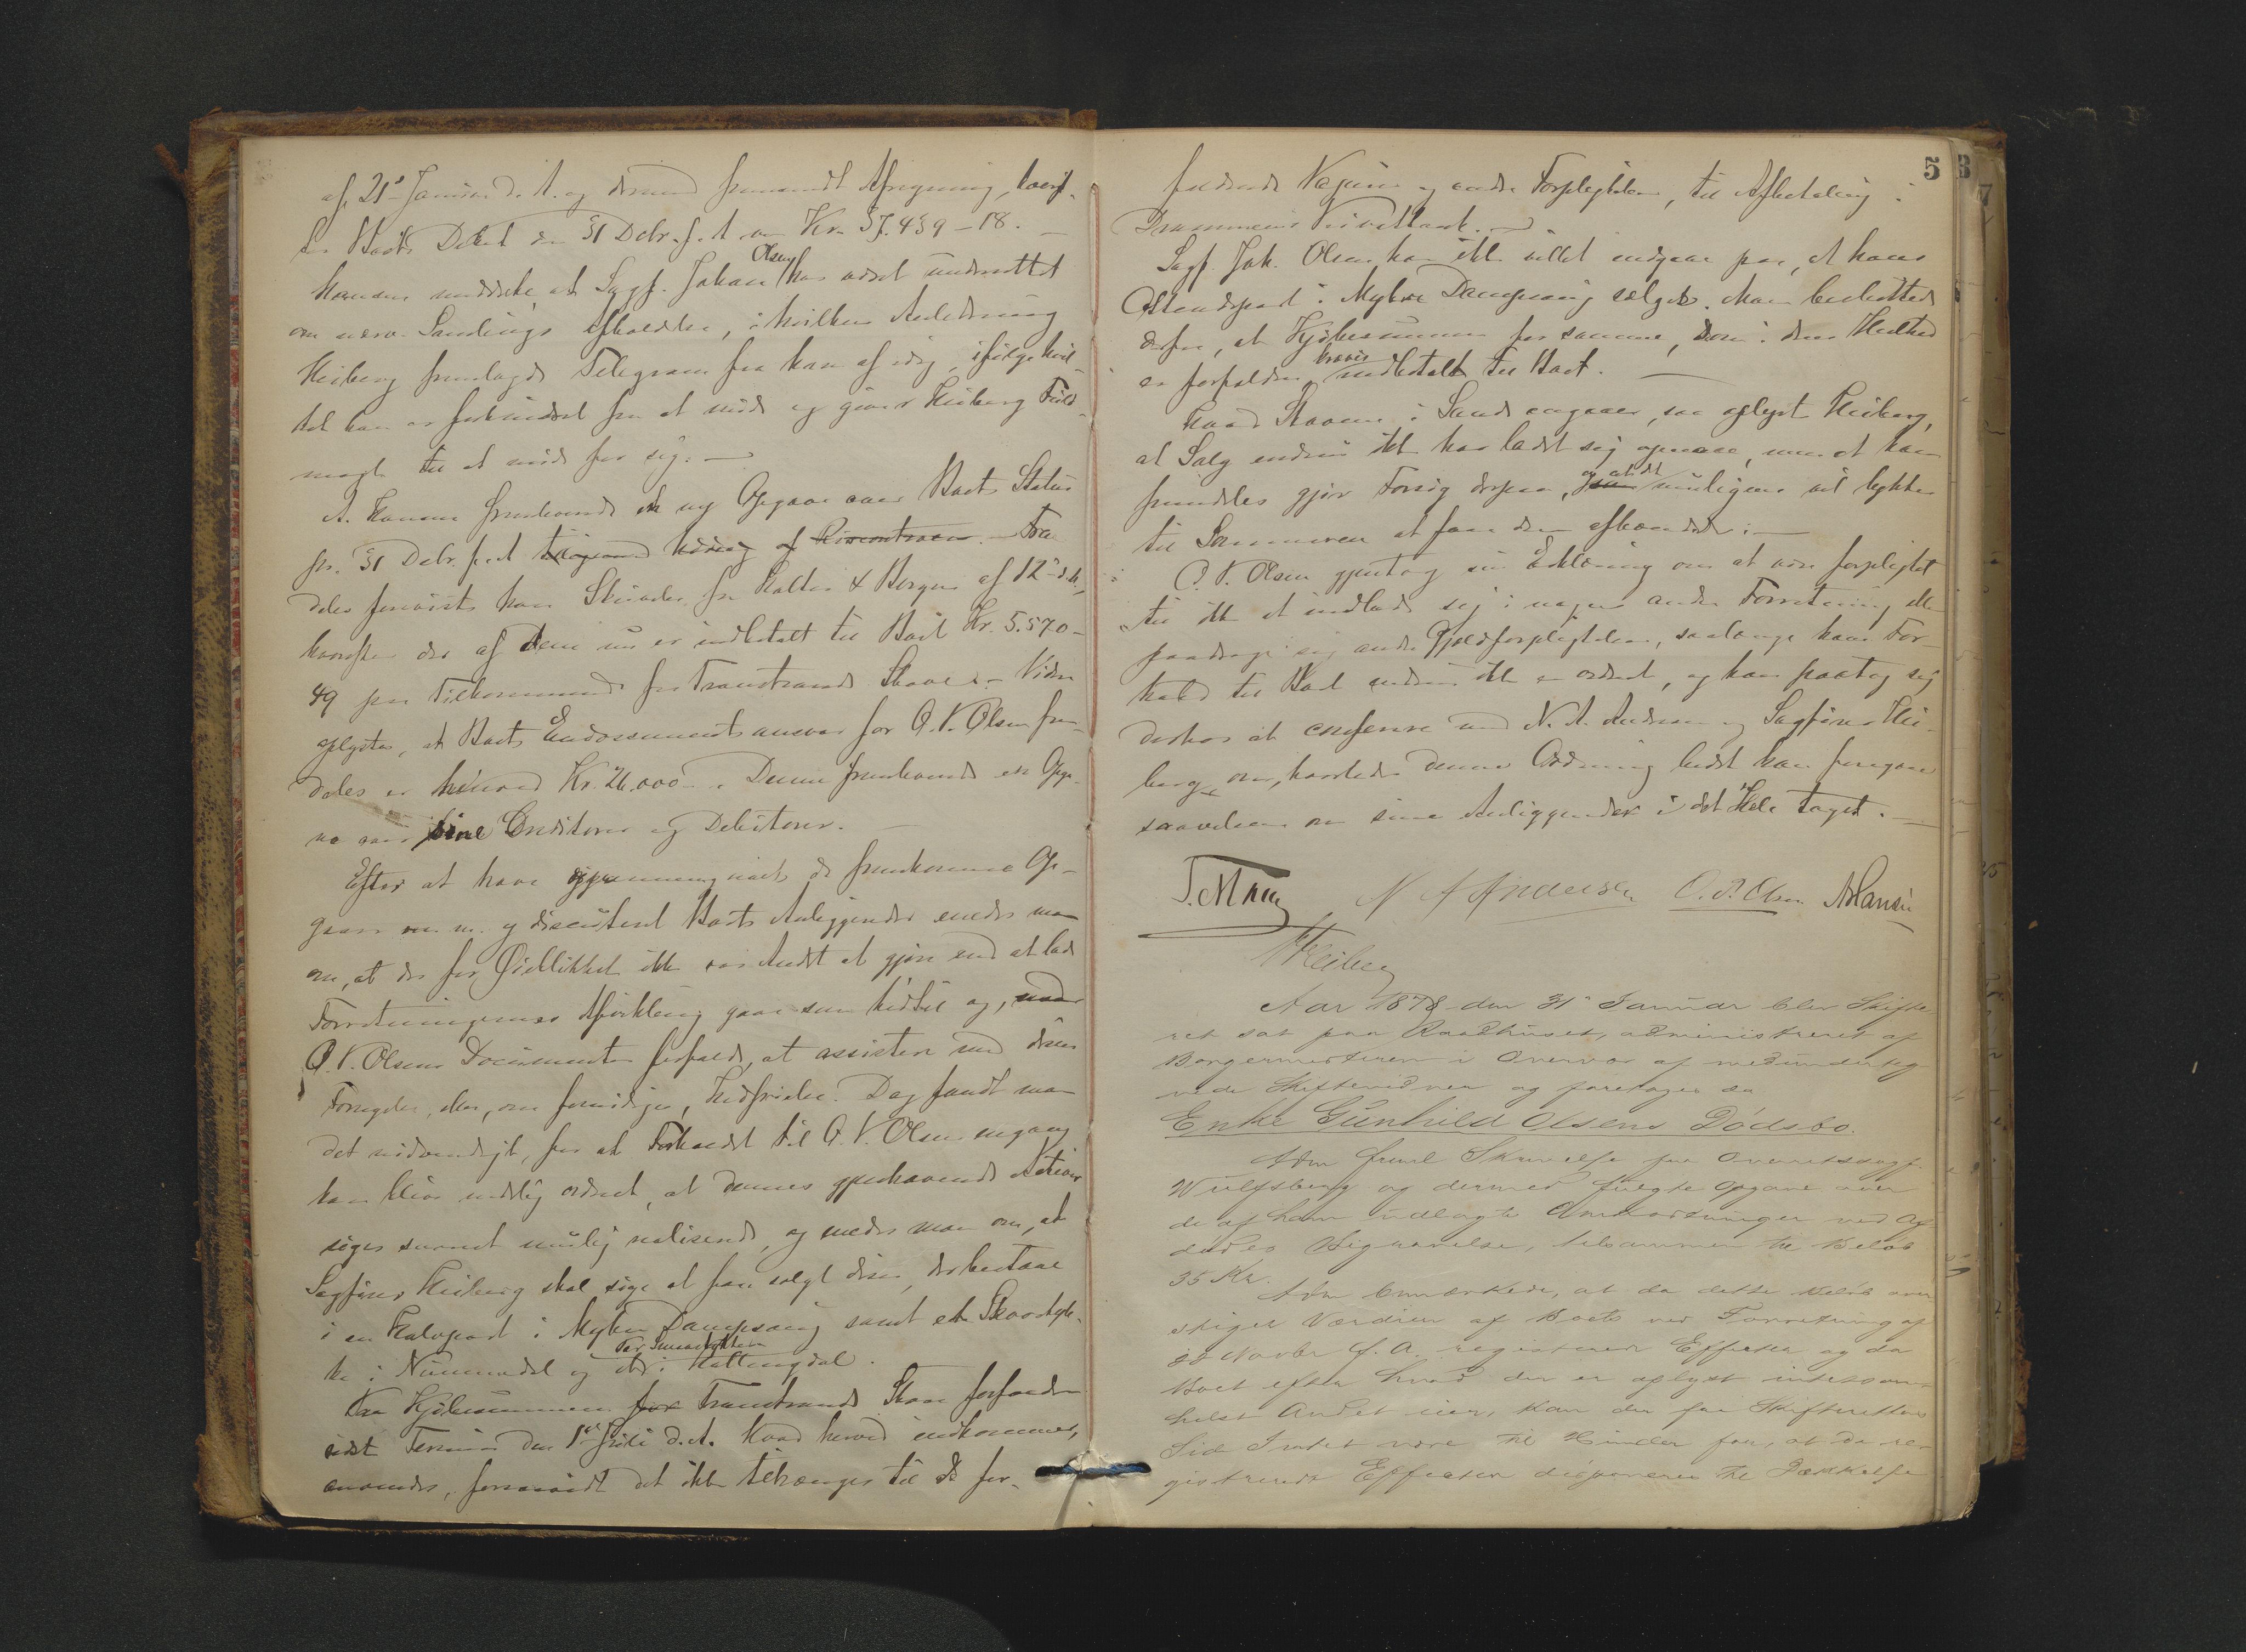 af 21' Januar d. A. og dermed fremsendt Afregning, hvorf.
Boets Debet den 31 Debr. f. A. var Kr. 37.439-18. —
Hansen meddelte, at Sagf. Johan Olsen har været underrettet
om nærv. Samlings Afholdelse, i hvilken Anledning
Heiberg fremlagde Telegram fra ham af idag, ifølge hvil-
ket han er forhindret fra at møde og giver Heiberg Fuld-
magt til at møde for sig. —
A. Hansen fremleverede en ny Opgave over Boets Status
pr. 31 Debr. f. A. Frem-
deles foreviste han Skrivelse fra Kolter & Borgen af 12' d. M.,
hvorefter der af dem nu er indbetalt til Boet Kr. 5.570-
49 paa Tilkommende for Trandstrands Skove. - Videre
oplystes, at Boets Endossementsansvar for O. V. Olsen frem-
deles er Kr. 26.000 -. Denne fremleverede en Opga-
ve over sine Creditorer og Debitorer.
Efter at have gjennemgaaet de fremkomne Op-
gaver m. m. og discuteret Boets Anliggender enedes man
om, at der for Øieblikket ikke var Andet at gjøre end at lade
Forretningernes Afvikling gaae som hidtil og, naar
O. V. Olsens Documenter forfalde, at assistere med disses
Fornyelse, eller, om fornødiges, Indfrielse. Dog fandt man
det nødvendigt, for at Forholdet til O. V. Olsen engang
kan blive endelig ordnet, at dennes gjenhavende Activer
søges snarest mulig realiserede, og enedes man om, at
Sagfører Heiberg skal søge at faae solgt disse, der bestaae
i en Halvpart i Myhre Dampsaug samt et Skovstyk-
ke i Nummedal og i Hallingdal.
Paa Kjøbesummen for Trandstrands Skov forfalder
sidste Termin den 1ste Juli d. A. Hvad herved indkommer,
anvendes, forsaavidt det ikke tiltrænges til de for-
5
faldende Vexler og andre Forpligtelser, til Afbetaling i
Drammens Privatbank. —
Sagf. Joh. Olsen har ikke villet indgaae paa, at hans
Aktiendepart i Myhre Dampsaug sælges. Man besluttede
derfor, at Kjøbesummen for samme, som i dens Helhed
er forfalden, kræves indbetalt til Boet. —
Hvad Skoven i Sande angaaer, saa oplyste Heiberg,
at Salg endnu ikke har ladet sig opnaae, men at han
fremdeles gjør Forsøg derpaa, og at det muligens vil lykkes
til Sommeren at faae den afhændet. —
O. V. Olsen gjentog sin Erklæring om at være forpligtet
til ikke at indlade sig i nogen anden Forretning eller
paadrage sig andre Gjældsforpligtelser, saalænge hans For-
hold til Boet endnu ikke er ordnet, og han paatog sig
derhos at conferere med N. A. Andersen og Sagfører Hei-
berg om, hvorledes denne Ordning bedst kan foregaae
saavelsom om sine Anliggender i det Hele taget. —
N A Andersen O. V. Olsen AHansen
Heiberg
Aar 1878 den 31' Januar blev Skifte-
ret sat paa Raadhuset, administreret af
Borgermesteren i Overvær af medunderteg-
nede Skiftevidner og foretages da
Enke Gunhild Olsens Dødsbo.
Adm freml Skrivelse fra Overretssagf.
Wulfsberg og dermed fulgte Opgave over
de af ham udlagte Omkostninger ved Af-
dødes Begravelse, tilsammen til Beløb
35 Kr.
Adm bemærkede, at da dette Beløb over-
stiger Værdien af Boets ved Forretning af
Novbr f. A. registrerede Effecter og da
Boet efter hvad der er oplyst intetsom-
helst Andet eier, kan der fra Skifterettens
Side Intet være til Hinder for, at de re-
gistrerede Effecter disponeres til Dækkelse